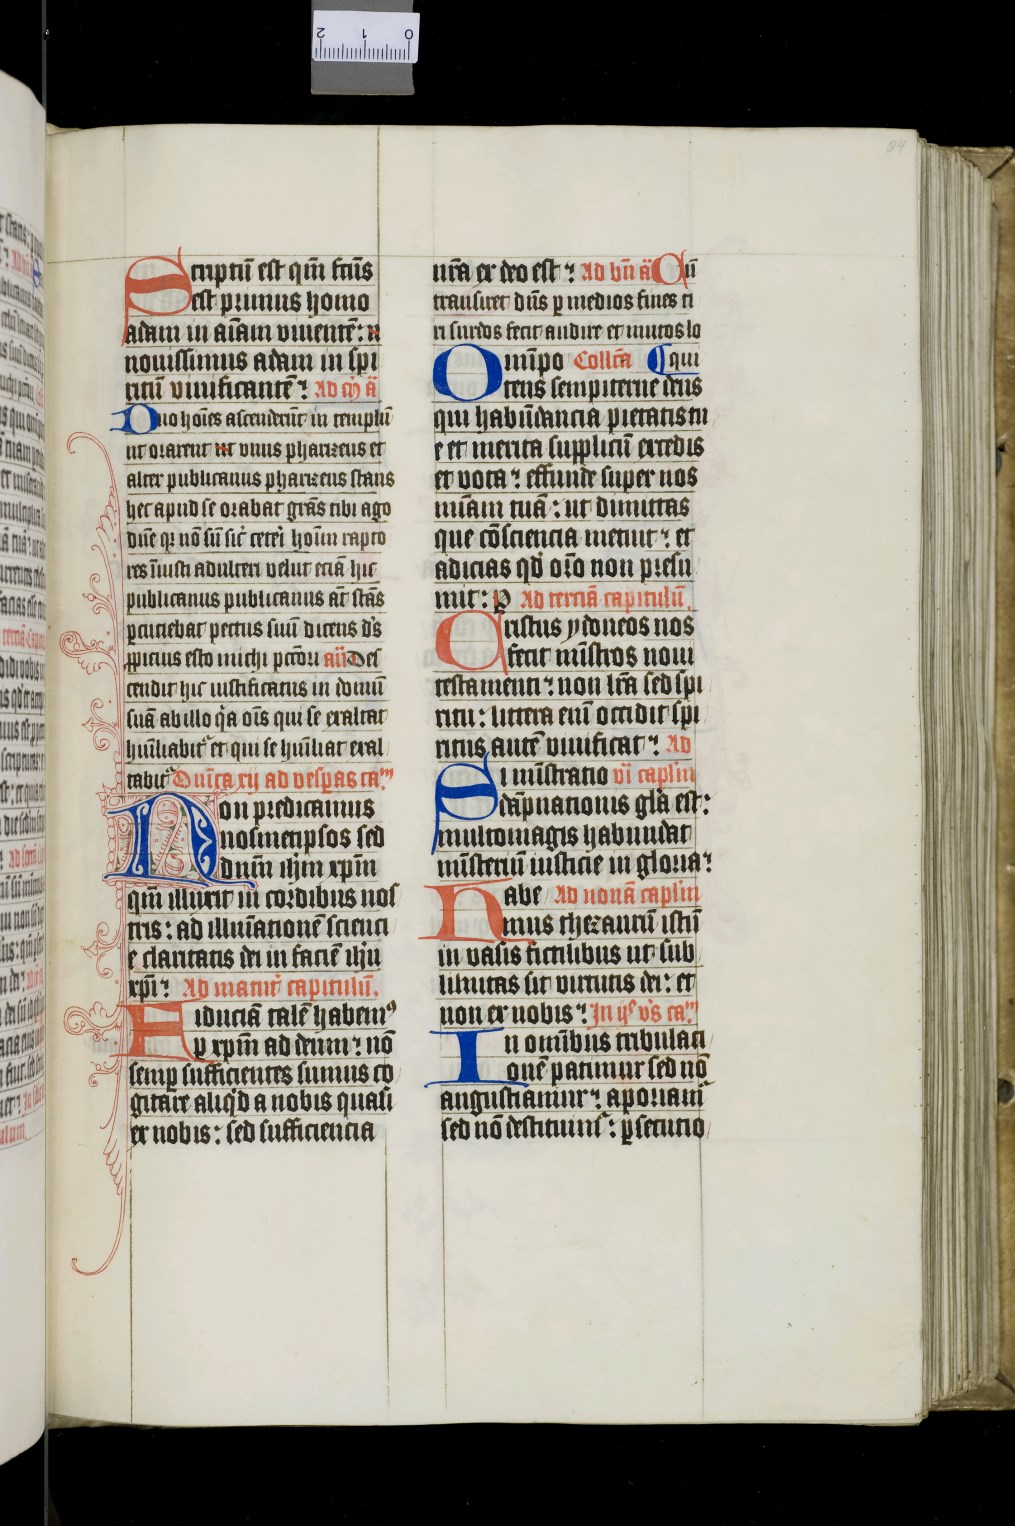 Scriptū est qm̄ fcūs
est primus homo
adam in aīam viuentē : n
nouissimus adam in spi
ritū viuificantē : Ad cp̄ ā
Duo hoīes ascenderūt in templū
ut orarent ut vnus pharizeus et
alter publicanus pharizeus stans
hec apud se orabat grās tibi ago
dn̄e qr nō sū sic̄ ceteri hoīm rapto
res iniusti adulteri velut eciā hic
publicanus publicanus āt stās
percuciebat pectus suū dicens ds̄
ppicius esto michi pctōri aīī Des
cendit hic iustificatus in domū
suā ab illo qa oīs qui se exaltat
hūiliabit et qui se hūiliat exal
tabit Dnīca xij ad vesperas ca
Non predicamus
nosmetipsos sed
dnm̄ ihm̄ xpm̄
qm̄ illuxit in cordibus nos
tris : ad illuīationē scienci
e claritatis dei in faciē ihu
xpi : Ad matut capitulū .
Fiduciā talē habem
p xpm̄ ad deum : nō
semp sufficientes sumus co
gitare aliqd a nobis quasi
ex nobis : sed sufficiencia
nrā ex deo est : Ad bn̄ ā Cū
transiret dn̄s p medios fines ti
ri surdos fecit audire et mutos lo
Omīpo Collcā qui
tens sempiterne deus
qui habūdancia pietatis tu
e et merita supplicū excedis
et vota : effunde super nos
mīam tuā : ut dimittas
que cōsciencia metuit : et
adicias qd orō non presu
mit : p Ad terciā capitulū .
Cristus ydoneos nos
fecit mīstros noui
testamenti : non lrā sed spi
ritu : littera enī occidit spi
ritus autē viuificat : Ad
Si mīstratio vi caplm
dāpnationis glā est :
multomagis habundat
mīsteriū iusticie in gloria :
Habe Ad nonā caplm
mus thezaurū istū
in vasis fictilibus ut sub
limitas sit virtutis dei : et
non ex nobis : In ijs vs ca
In omībus tribulaci
onē patimur sed nō
angustiamur : aporiam
sed nō destituim : psecutio